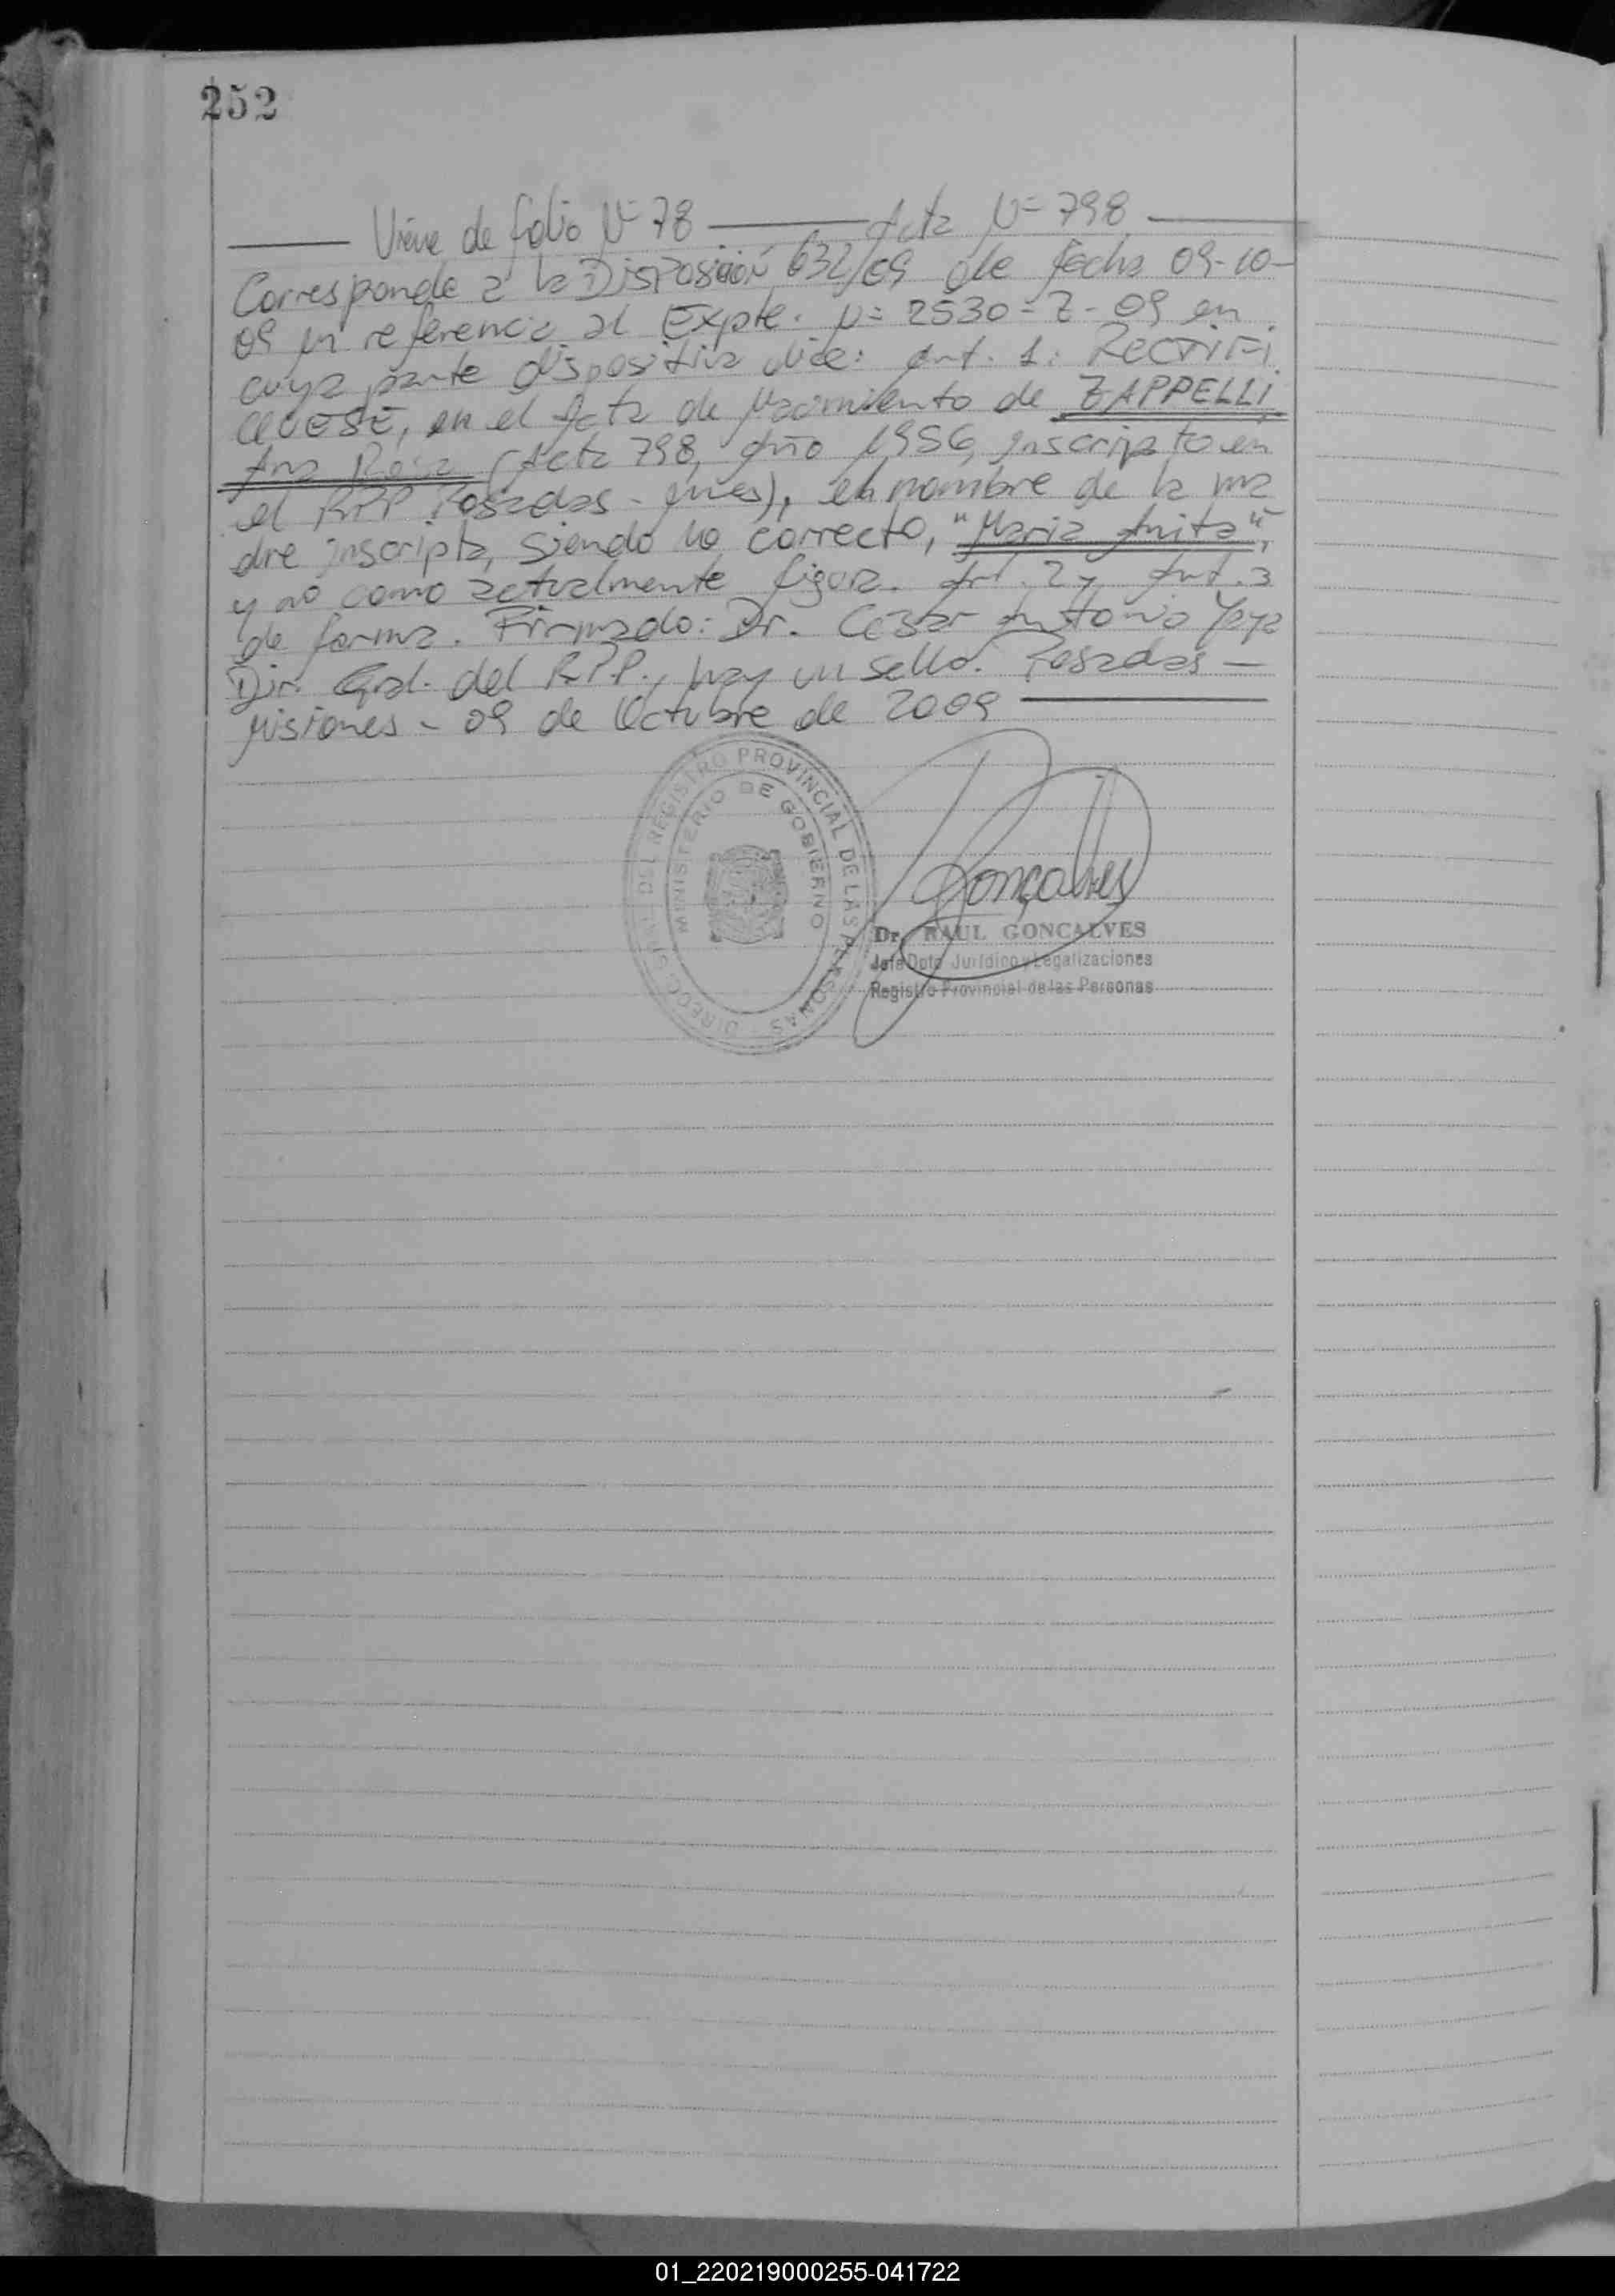 252
Viene de folio Nº 78 Acta Nº 798
Corresponde a la Disposición 632/09 de fecha 09-10-
09 en referencia al Expte. Nº 2530-Z-09 en
cuya parte dispositiva dice: Art. 1: RECTIFI
QUESE, en el Acta de Nacimiento de ZAPPELLI
Ana Rosa (Acta 798, Año 1956, inscripto en
el RPP Posadas - Mnes), el nombre de la ma
dre inscripta, siendo lo correcto, "Maria Anita",
y no como actualmente figura. Art. 2 y Art. 3
de forma. Firmado: Dr. César Antonio Yaya
Dir. Gral. del R.P.P., hay un sello. Posadas -
Misiones - 09 de Octubre de 2009
DEL REGISTRO PROVINCIAL DE LAS PERSONAS
MINISTERIO DE GOBIERNO
Gonçalves
Dr. RAUL GONCALVES
Jefe Dpto Jurídico y Legalizaciones
Registro Provincial de las Personas
01_220219000255-041722